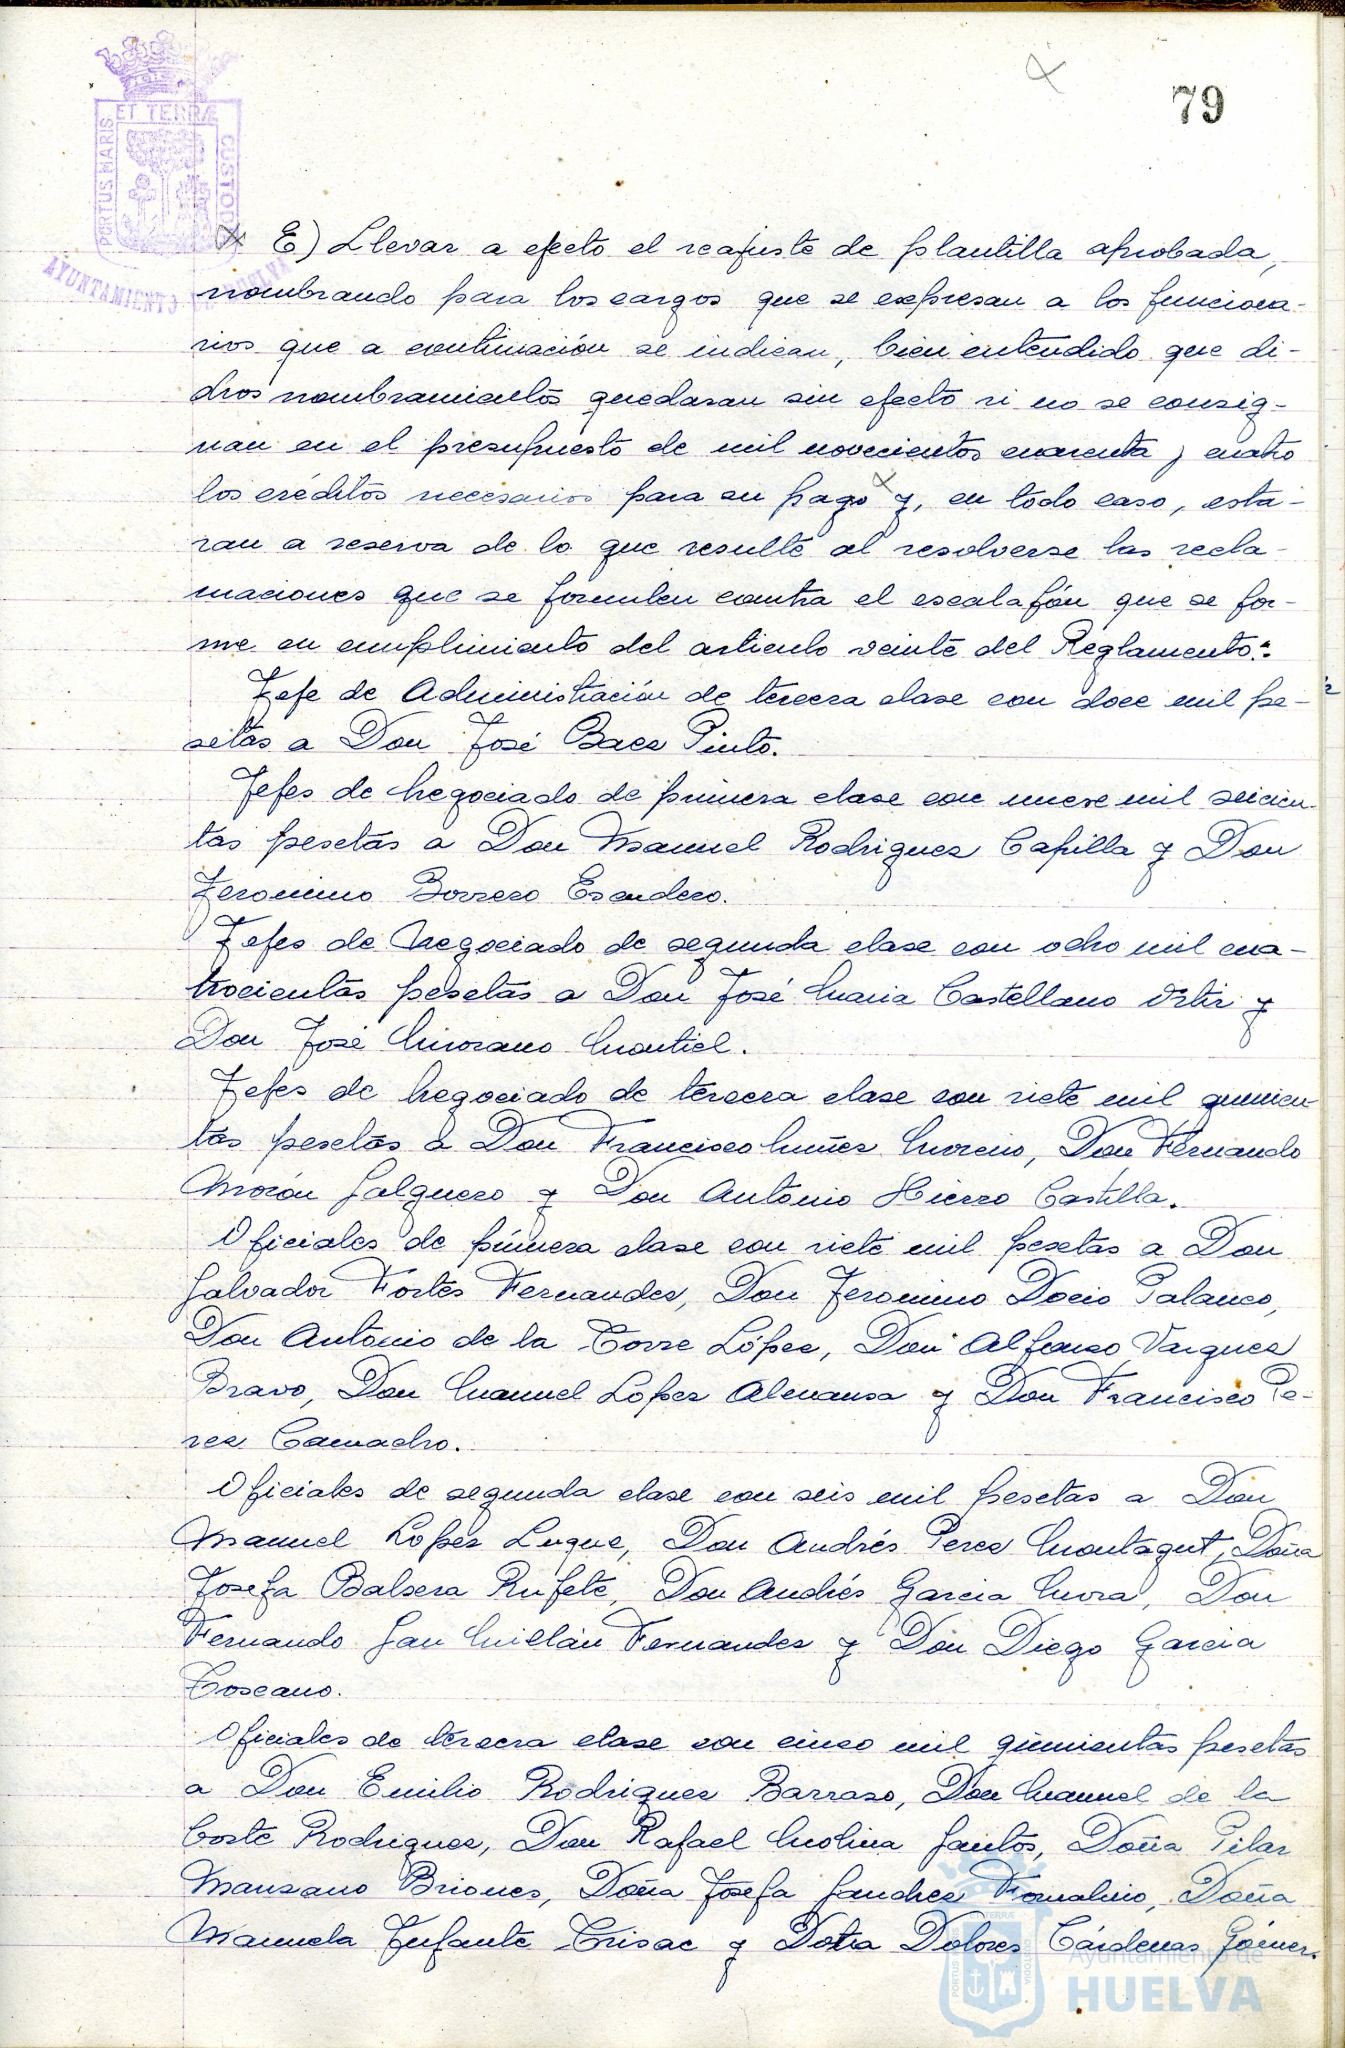 79
ET TERRÆ
PORTUS MARIS
CUSTOD
AYUNTAMIENTO DE HUELVA
E) Llevar a efecto el reajuste de plantilla aprobada,
nombrando para los cargos que se expresan a los funciona-
rios que a continuación se indican, bien entendido que di-
chos nombramientos quedaran sin efecto si no se consig-
nan en el presupuesto de mil novecientos cuarenta y cuatro
los créditos necesarios para su pago y, en todo caso, esta-
ran a reserva de lo que resulte al resolverse las recla-
maciones que se formulen contra el escalafón que se for-
me en cumplimiento del articulo veinte del Reglamento.:
Jefe de Administración de tercera clase con doce mil pe-
setas a Don José Baez Pinto.
Jefes de Negociado de primera clase con nueve mil seicien-
tas pesetas a Don Manuel Rodriguez Capilla y Don
Jeronimo Borrero Escudero.
Jefes de Negociado de segunda clase con ocho mil cua-
trocientas pesetas a Don José Maria Castellano Ortiz y
Don José Morano Montiel.
Jefes de Negociado de tercera clase con siete mil quinien-
tas pesetas a Don Francisco Muñoz Moreno, Don Fernando
Morón Salguero y Don Antonio Hierro Castilla.
Oficiales de primera clase con siete mil pesetas a Don
Salvador Fortes Fernandez, Don Jeronimo Docio Palanco,
Don Antonio de la Torre López, Don Alfonso Vazquez
Bravo, Don Manuel Lopez Almansa y Don Francisco Pe-
rez Camacho.
Oficiales de segunda clase con seis mil pesetas a Don
Manuel Lopez Luque, Don Andrés Perez Montagut, Doña
Josefa Balsera Rufete, Don Andrés Garcia Mora, Don
Fernando San Millán Fernandez y Don Diego Garcia
Toscano.
Oficiales de tercera clase con cinco mil quinientas pesetas
a Don Emilio Rodriguez Barraso, Don Manuel de la
Corte Rodriguez, Don Rafael Molina Santos, Doña Pilar
Manzano Briones, Doña Josefa Sanchez, Doña
Manuela Infante Trisac y Doña Dolores Cárdenas Gómez.
Ayuntamiento de
HUELVA